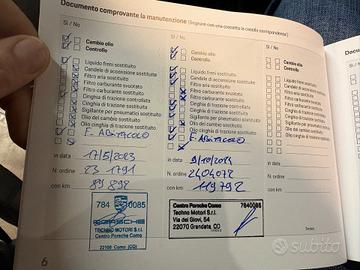 Documento comprovante la manutenzione (Segnare con una crocetta le caselle corrispondenti)
Sì / No
Cambio olio
Controllo
Liquido freni sostituito
Candele di accensione sostituite
Filtro aria sostituito
Filtro carburante svuotato
Filtro carburante sostituito
Cinghia di trazione controllata
Cinghia di trazione sostituita
Sigillante per pneumatici sostituito
Olio del cambio sostituito
Olio cinghia di trazione sostituito
F. ABITACOLO
in data 17/5/2023
N. ordine 23 1791
con km 89 898
784 0085
PORSCHE
Techno Motori S.r.l.
Centro Porsche Como
22100 Como (CO)
Sì / No
Cambio olio
Controllo
Liquido freni sostituito
Candele di accensione sostituite
Filtro aria sostituito
Filtro carburante svuotato
Filtro carburante sostituito
Cinghia di trazione controllata
Cinghia di trazione sostituita
Sigillante per pneumatici sostituito
Olio del cambio sostituito
Olio cinghia di trazione sostituito
F. ABITACOLO
in data
N. ordine 2404072
con km 119792
Centro Porsche Como 7840085
Techno Motori S.r.l.
Via dei Giovi, 54
22070 Grandate CO
Sì / No
Cambio olio
Controllo
Liquido freni sostituito
Candele di accensione sostituite
Filtro aria sostituito
Filtro carburante svuotato
Filtro carburante sostituito
Cinghia di trazione controllata
Cinghia di trazione sostituita
Sigillante per pneumatici sostituito
Olio del cambio sostituito
Olio cinghia di trazione sostituito
in data
N. ordine
con km
Timbro
6
subito